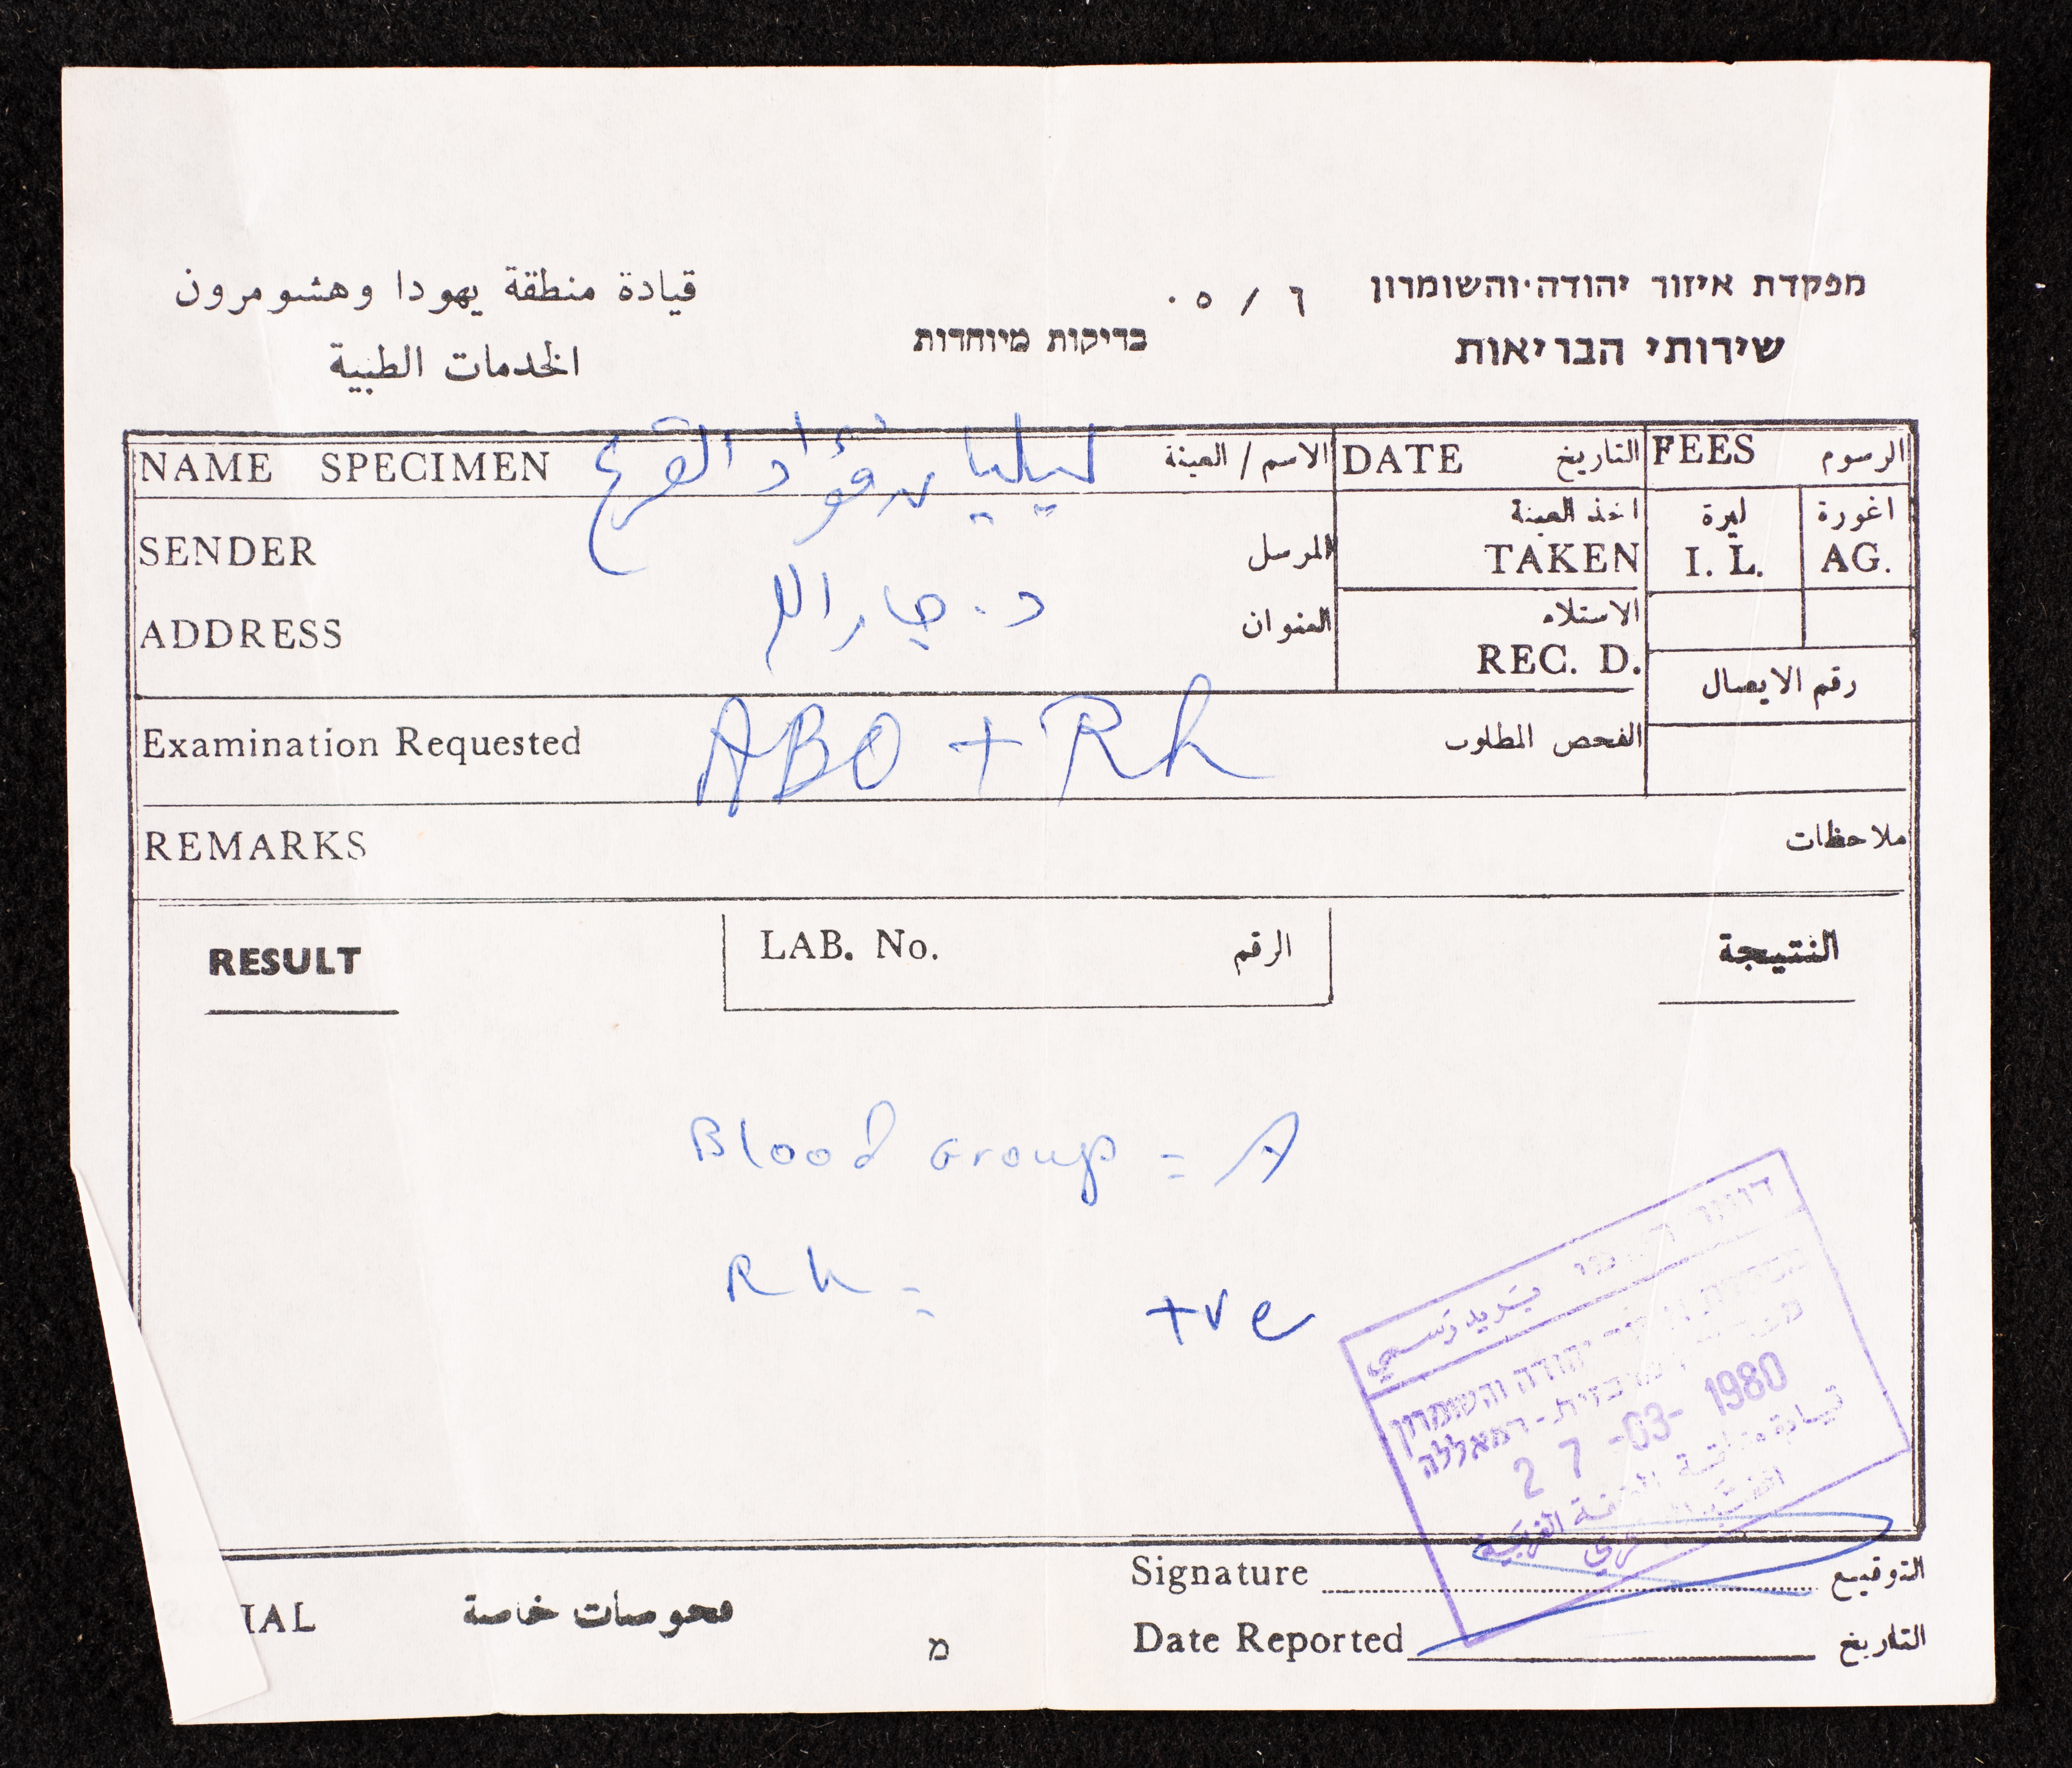 قيادة منطقة يهودا وهشومرون
الخدمات الطبية
מפקדת איזור יהודה והשומרון
שירותי הבריאות
בדיקות מיוחדות
NAME SPECIMEN ليليان فؤاد القرع الاسم / العينة
DATE التاريخ
FEES الرسوم
SENDER المرسل
اخذ العينة
TAKEN
ليرة اغورة
I. L. AG.
ADDRESS د. جار الله العنوان
الاستلام
REC. D.
رقم الايصال
Examination Requested ABO + Rh الفحص المطلوب
REMARKS ملاحظات
RESULT LAB. No. الرقم النتيجة
Blood Group = A
Rh = +ve
بريد رسمي
יהודה והשומרון
רמאללה
27 -03- 1980
قيادة منطقة الضفة الغربية
Signature التوقيع
IAL فحوصات خاصة
מ
Date Reported التاريخ